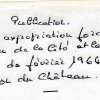 Publication.
expropriation for
de la Cité et le
de février 1966
du Château.